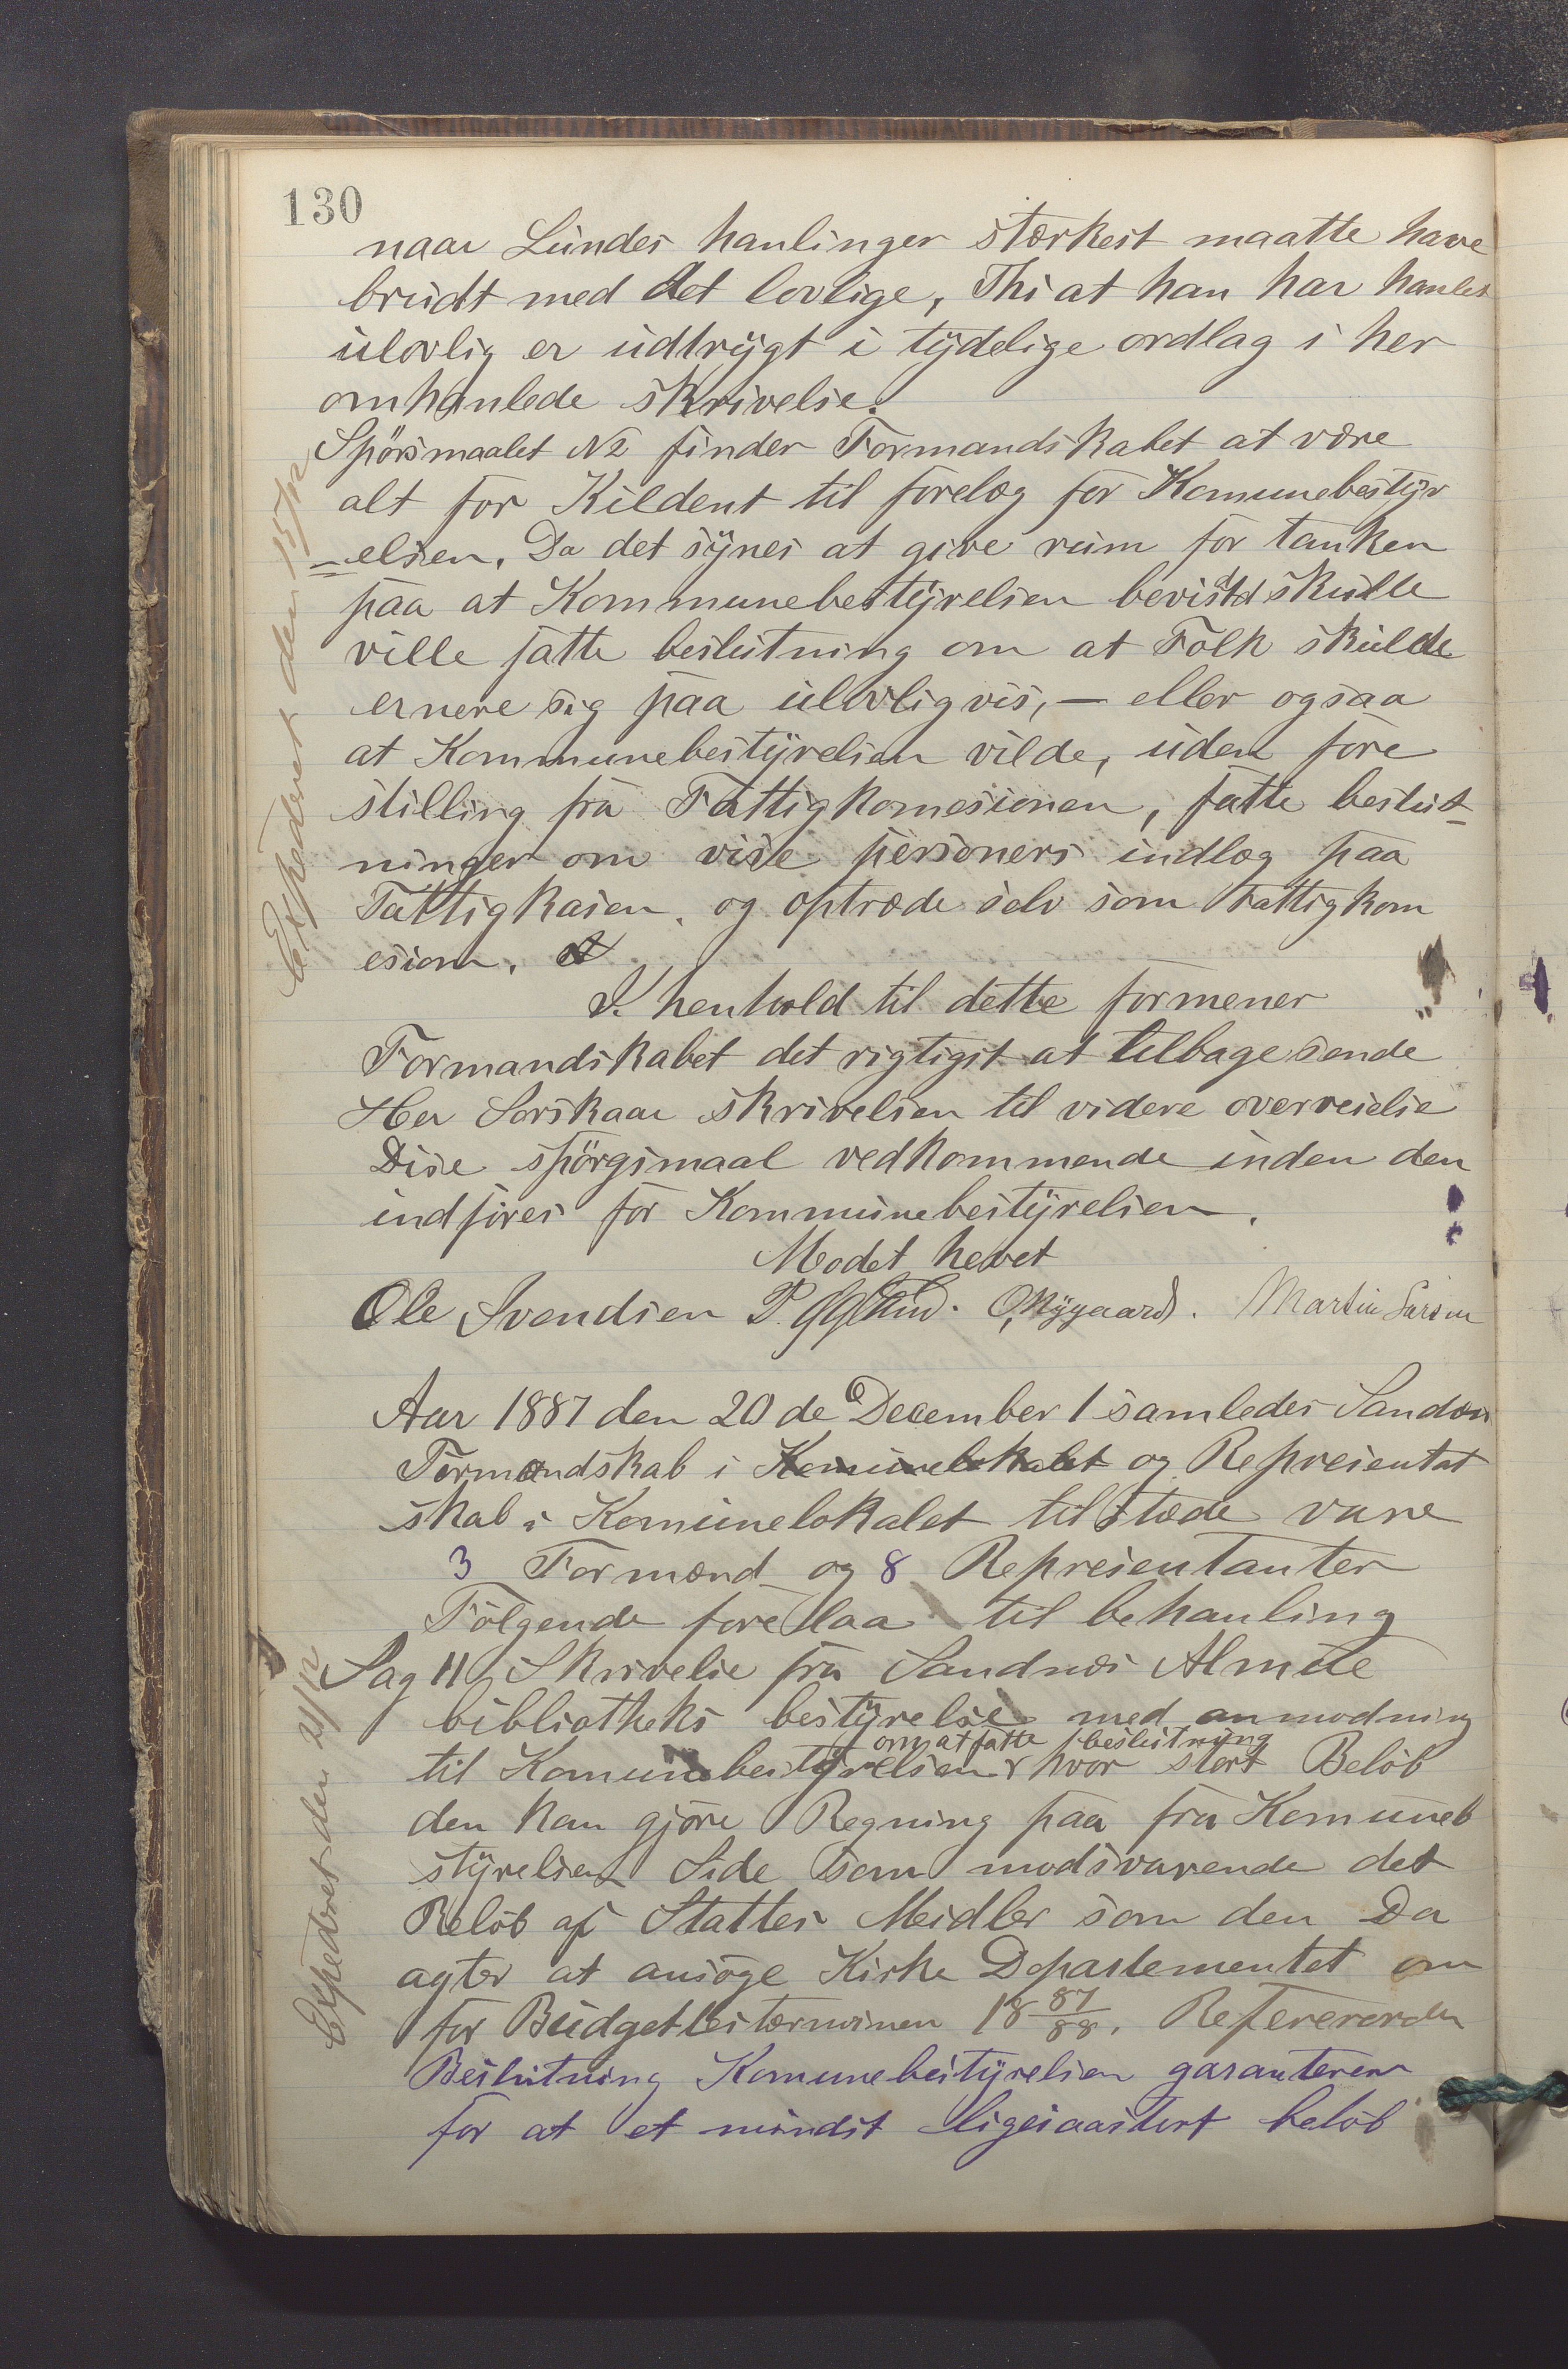 130
naar Lundes hanlinger stærkest maatte have
brudt med det lovlige, Thi at han har hanlet
ulovlig er udtrygt i tydelige ordlag i her
omhanlede skrivelse.
Spörsmaalet N2 finder Formandskabet at være
alt for Kildent til forelæg for Komunebestyr
-elsen. Da det synes at give rum for tanken
paa at Kommunebestyrelsen bevidst skulle
ville fatte beslutning om at Folk skulde
ernere sig paa ulovligvis, — eller ogsaa
at Kommunebestyrelsen vilde, uden fore
stilling fra Fattigkomesionen, fatte beslut-
ninger om vise personers indlæg paa
Fattigkasen, og optræde selv som Fattigkom
esion.
I henhold til dette formener
Formandskabet det rigtigst at tilbagesende
Her Sorskaar skrivelsen til videre overveielse
Dise spörgsmaal vedkommende inden den
indföres for Kommunebestyrelsen.
Mödet hevet
Ole Svendsen P. O. Nygaard. Martin Larsen
Expederet den 15/12
Aar 1887 den 20de December samledes Sandnes
Formandskab i Komunelokalet og Representat
skab i Komunelokalet tilstede vare
3 Formænd og 8 Representanter
Fölgende forelaa til behanling
Sag 11 Skrivelse fra Sandnæs Almue
bibliotheks bestyrelse med anmodning
om at fatte beslutning
til Komunebestyrelsen hvor stort Belöb
den kan gjöre Regning paa fra Komuneb
styrelsens Side som modsvarende det
Belöb af Stattes Meidler som den Da
agter at ansöge Kirke Departementet om
for Budgettesterminen 18 87/88. Refereredes
Beslutning Komunebestyrelsen garanterer
for at et mindst ligesaastort belöb
Expedret den 21/12